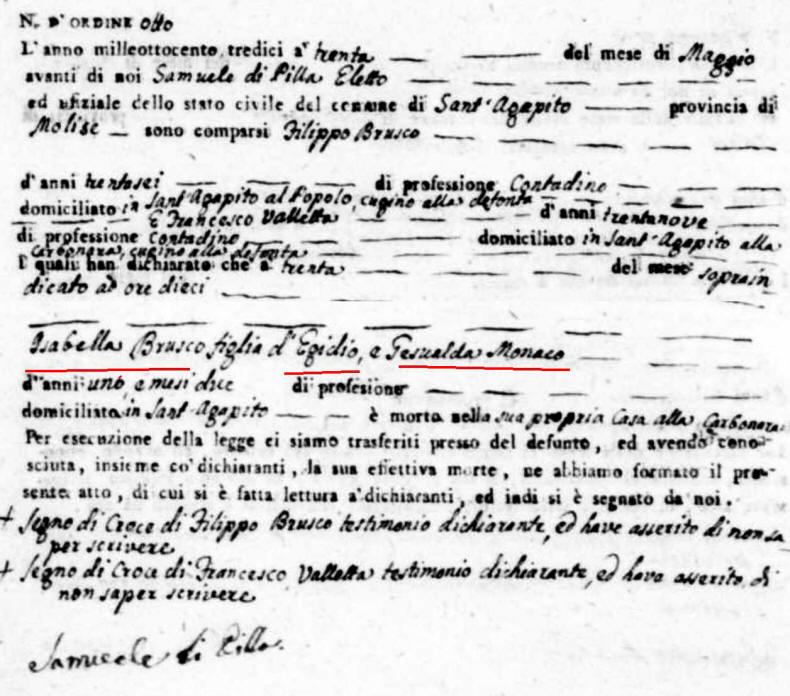 N. D'ORDINE otto
L'anno milleottocento tredici a' trenta del mese di Maggio
avanti di noi Samuele di Pilla Eletto
ed ufiziale dello stato civile del comune di Sant'Agapito provincia di
Molise sono comparsi Filippo Brusco
d'anni trentasei di professione Contadino
domiciliato in Sant'Agapito al Popolo, cugino alla defonta
E Francesco Valletta d'anni trentanove
di professione Contadino domiciliato in Sant'Agapito alla
Carbonara, cugino alla defonta
I quali han dichiarato che a trenta del mese soprain
dicato ad ore dieci
Isabella Brusco figlia d'Egidio, e Gesualda Monaco
d'anni uno, e mesi due di profesione
domiciliata in Sant'Agapito è morto nella sua propria Casa alla Carbonara
Per esecuzione della legge ci siamo trasferiti presso del defunto, ed avendo cono-
sciuta, insieme co' dichiaranti, la sua effettiva morte, ne abbiamo formato il pre-
sente atto, di cui si è fatta lettura a' dichiaranti, ed indi si è segnato da noi.
+ Segno di Croce di Filippo Brusco testimonio dichiarante, ed have asserito di non sa
per scrivere
+ Segno di Croce di Francesco Valletta testimonio dichiarante, ed have asserito di
non saper scrivere
Samuele di Pilla